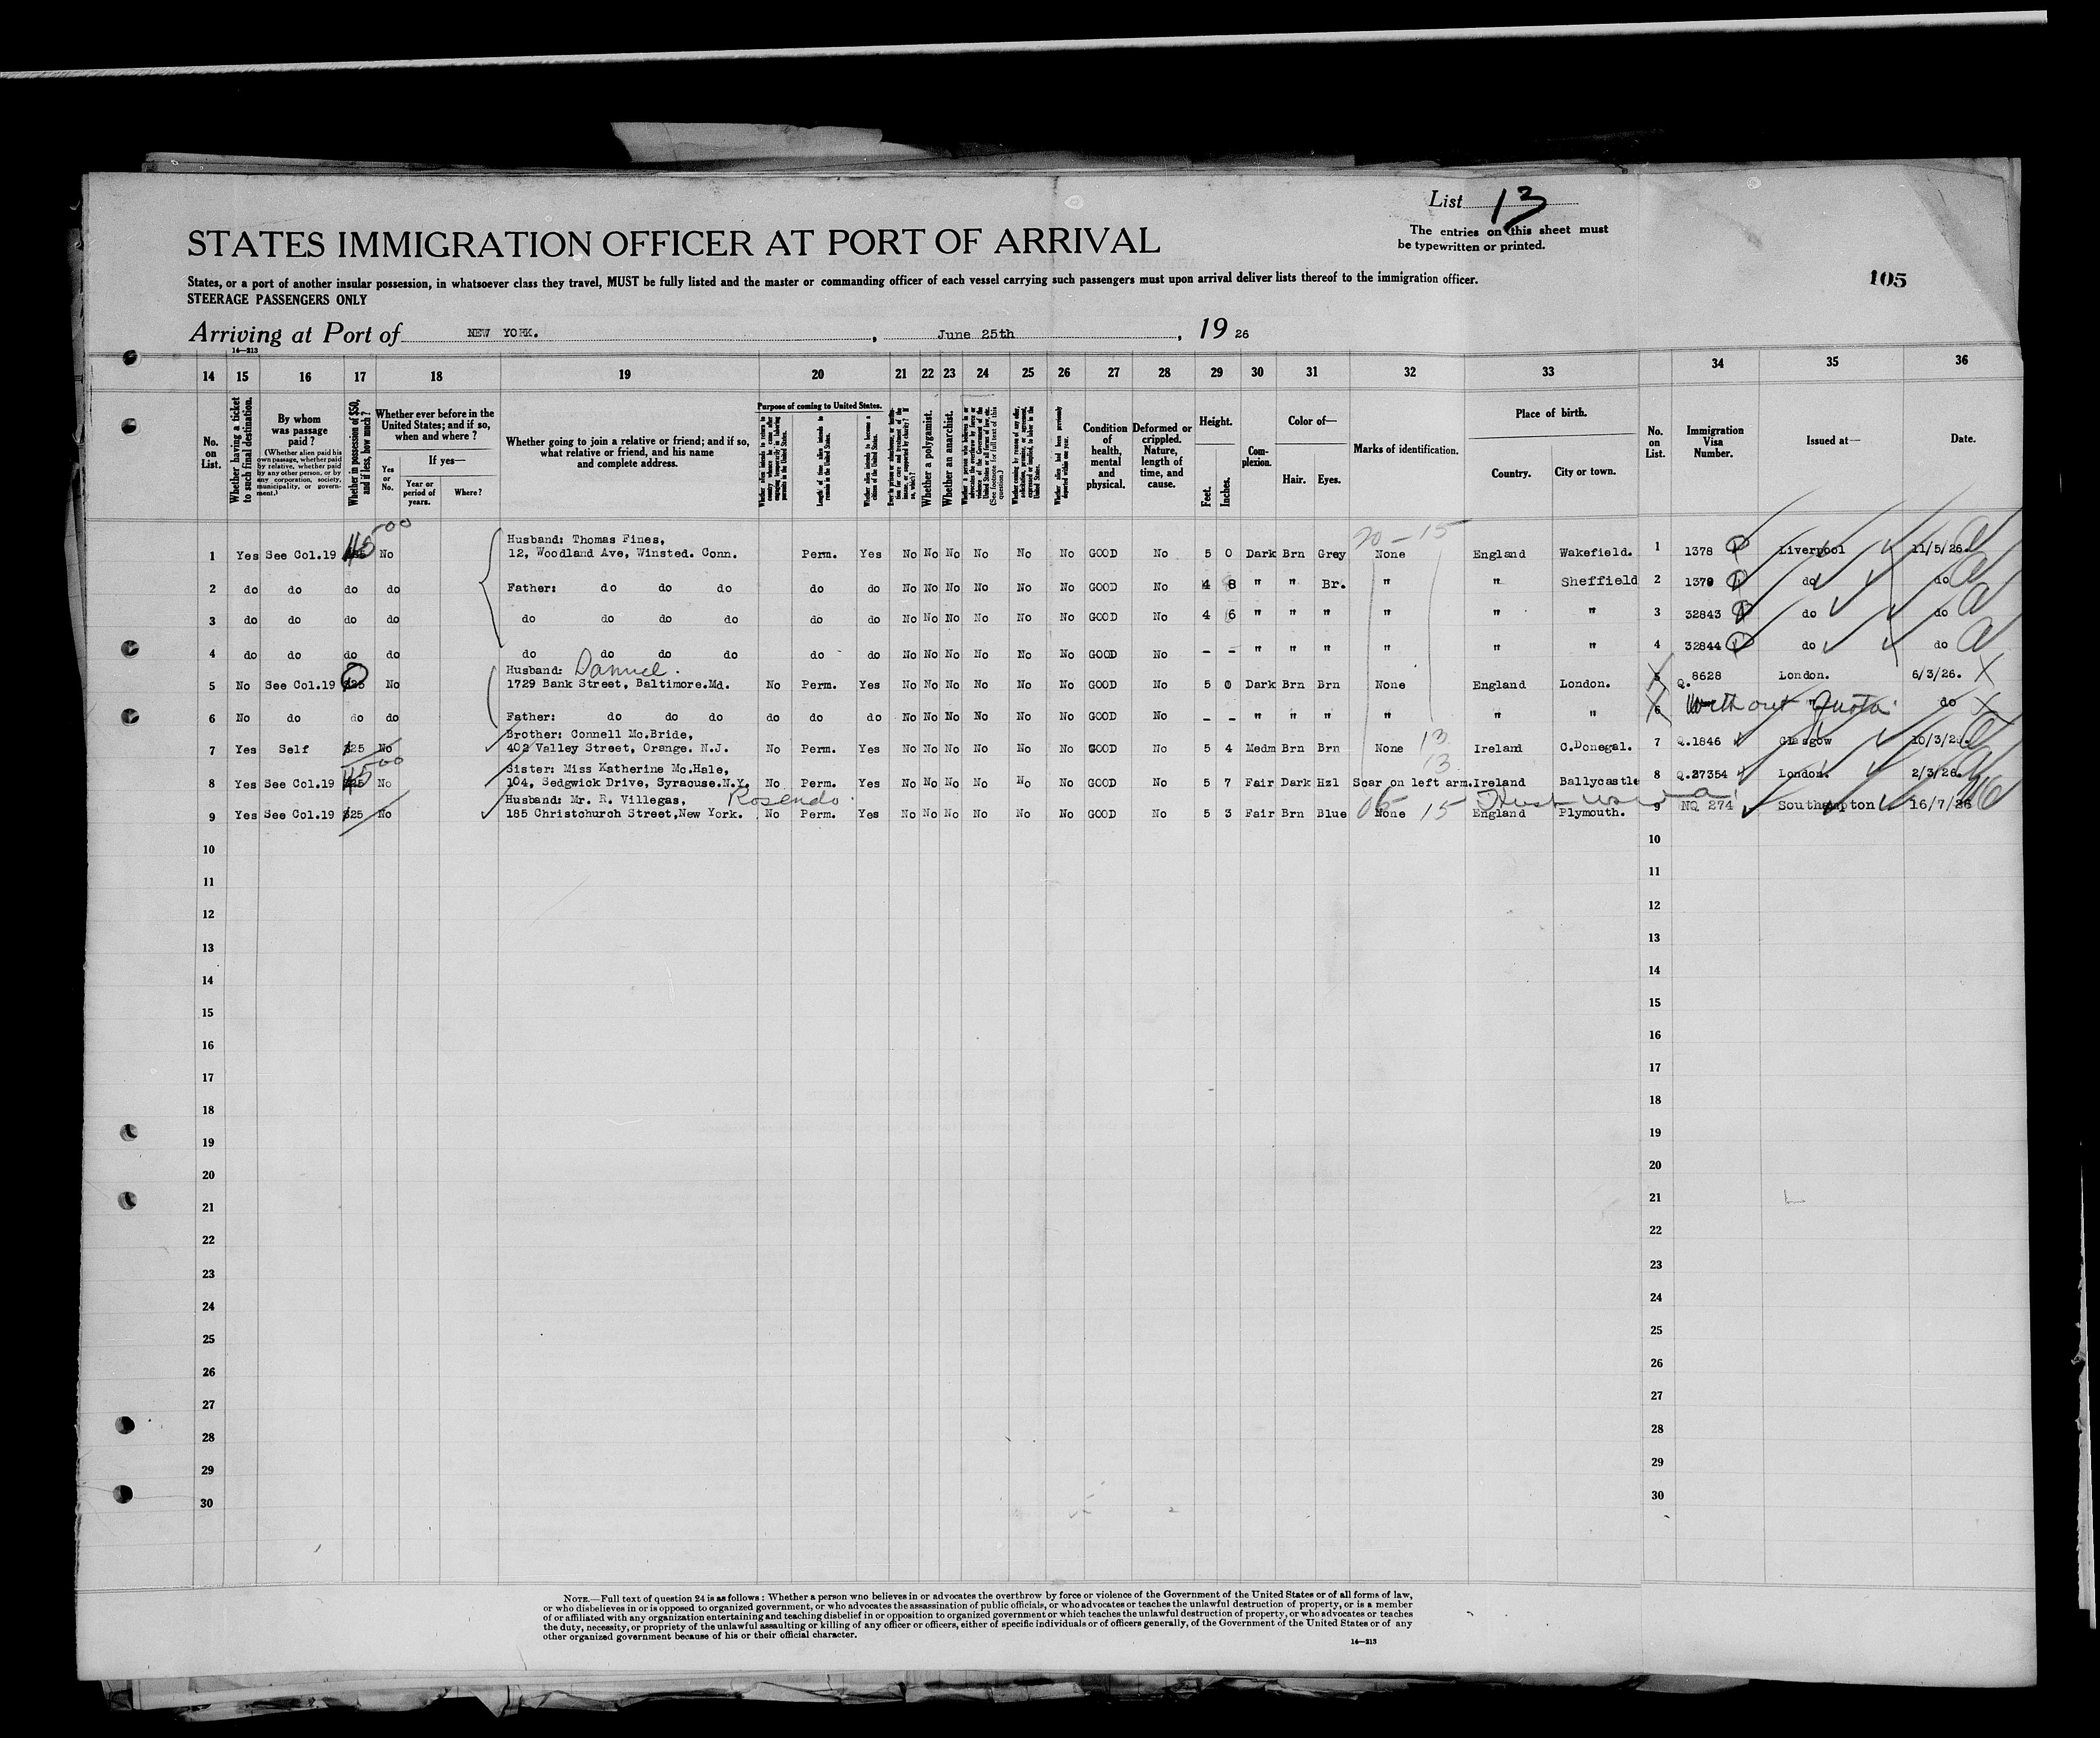 List 13
The entries on this sheet must
be typewritten or printed.
STATES IMMIGRATION OFFICER AT PORT OF ARRIVAL
105
States, or a port of another insular possession, in whatsoever class they travel, MUST be fully listed and the master or commanding officer of each vessel carrying such passengers must upon arrival deliver lists thereof to the immigration officer.
STEERAGE PASSENGERS ONLY
Arriving at Port of NEW YORK. , June 25th , 19 26
16—213
14 15 16 17 18 19 20 21 22 23 24 25 26 27 28 29 30 31 32 33 34 35 36
No. on List.
Whether having a ticket to such final destination.
By whom was passage paid?
(Whether alien paid his own passage, whether paid by relative, whether paid by any other person, or by any corporation, society, municipality, or government.)
Whether in possession of $50, and if less, how much?
Whether ever before in the United States; and if so, when and where?
Yes or No.
If yes—
Year or period of years.
Where?
Whether going to join a relative or friend; and if so, what relative or friend, and his name and complete address.
Purpose of coming to United States.
Length of time alien intends to remain in the United States.
Whether alien intends to become a citizen of the United States.
Whether a polygamist.
Whether an anarchist.
Condition of health, mental and physical.
Deformed or crippled. Nature, length of time, and cause.
Height.
Feet.
Inches.
Complexion.
Color of—
Hair.
Eyes.
Marks of identification.
Place of birth.
Country.
City or town.
No. on List.
Immigration Visa Number.
Issued at—
Date.
20-15
Husband: Thomas Fines,
1 Yes See Col.19 No 12, Woodland Ave, Winsted. Conn. Perm. Yes No No No No No No GOOD No 5 0 Dark Brn Grey None England Wakefield. 1 1378 Liverpool 11/5/26.
2 do do do do Father: do do do do do No No No No No No GOOD No 4 8 " " Br. " " Sheffield 2 1379 do do
3 do do do do do do do do do do No No No No No No GOOD No 4 6 " " " " " " 3 32843 do do
4 do do do do do do do do do do No No No No No No GOOD No - - " " " " " " 4 32844 do do
Husband: Daniel.
5 No See Col.19 $25 No 1729 Bank Street, Baltimore.Md. No Perm. Yes No No No No No No GOOD No 5 0 Dark Brn Brn None England London. 5 Q.8628 London. 6/3/26.
6 No do do do Father: do do do do do do No No No No No No GOOD No - - " " " " " " 6 Without Quota do
Brother: Connell Mc.Bride,
7 Yes Self $25 No 402 Valley Street, Orange. N.J. No Perm. Yes No No No No No No GOOD No 5 4 Medm Brn Brn None 13 Ireland C.Donegal. 7 Q.1846 Glasgow 10/3/26.
Sister: Miss Katherine Mc.Hale, 13
8 Yes See Col.19 $25 No 104, Sedgwick Drive, Syracuse.N.Y. No Perm. Yes No No No No No No GOOD No 5 7 Fair Dark Hzl Scar on left arm. Ireland Ballycastle 8 Q.27354 London. 2/3/26.
Husband: Mr. R. Villegas, Rosendo
9 Yes See Col.19 $25 No 185 Christchurch Street,New York. No Perm. Yes No No No No No No GOOD No 5 3 Fair Brn Blue None 15 England Plymouth. 9 NQ 274 Southampton 16/7/26
10 10
11 11
12 12
13 13
14 14
15 15
16 16
17 17
18 18
19 19
20 20
21 21
22 22
23 23
24 24
25 25
26 26
27 27
28 28
29 29
30 30
NOTE.—Full text of question 24 is as follows: Whether a person who believes in or advocates the overthrow by force or violence of the Government of the United States or of all forms of law,
or who disbelieves in or is opposed to organized government, or who advocates the assassination of public officials, or who advocates or teaches the unlawful destruction of property, or is a member
of or affiliated with any organization entertaining and teaching disbelief in or opposition to organized government or which teaches the unlawful destruction of property, or who advocates or teaches
the duty, necessity, or propriety of the unlawful assaulting or killing of any officer or officers, either of specific individuals or of officers generally, of the Government of the United States or of any
other organized government because of his or their official character.
16—213